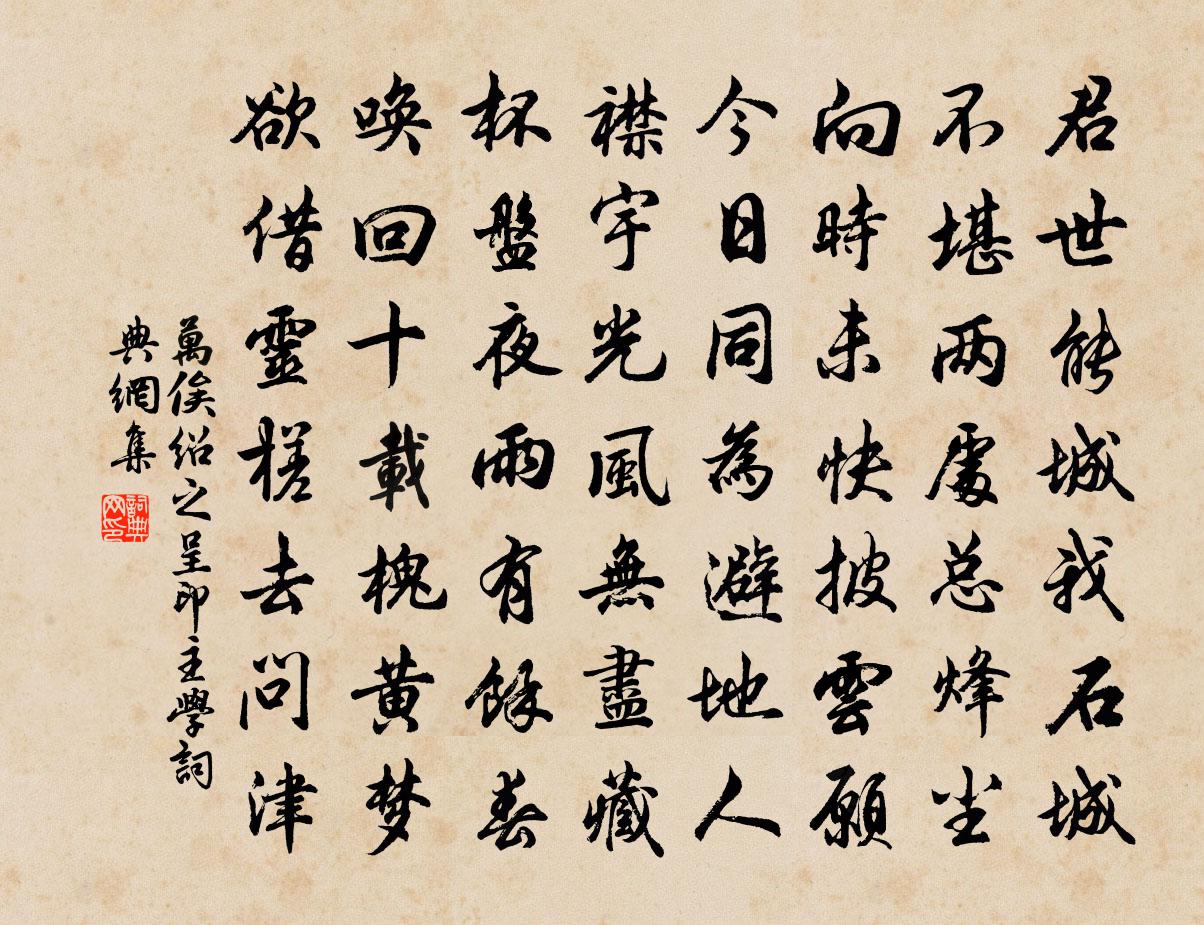 君世能城我石城
不堪兩處总烽尘
向時未快披雲願
今日同為避地人
襟宇光風無盡藏
杯盤夜雨有餘春
喚回十載槐黄梦
欲借靈槎去問津
萬俟绍之呈印主學詞
典網集
詞典网印